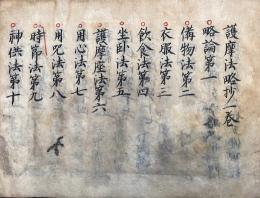 護摩法略抄一卷
略論第一
備物法第二
衣服法第三
飲食法第四
坐卧法第五
護摩座法第六
用心法第七
用咒法第八
時節法第九
神供法第十